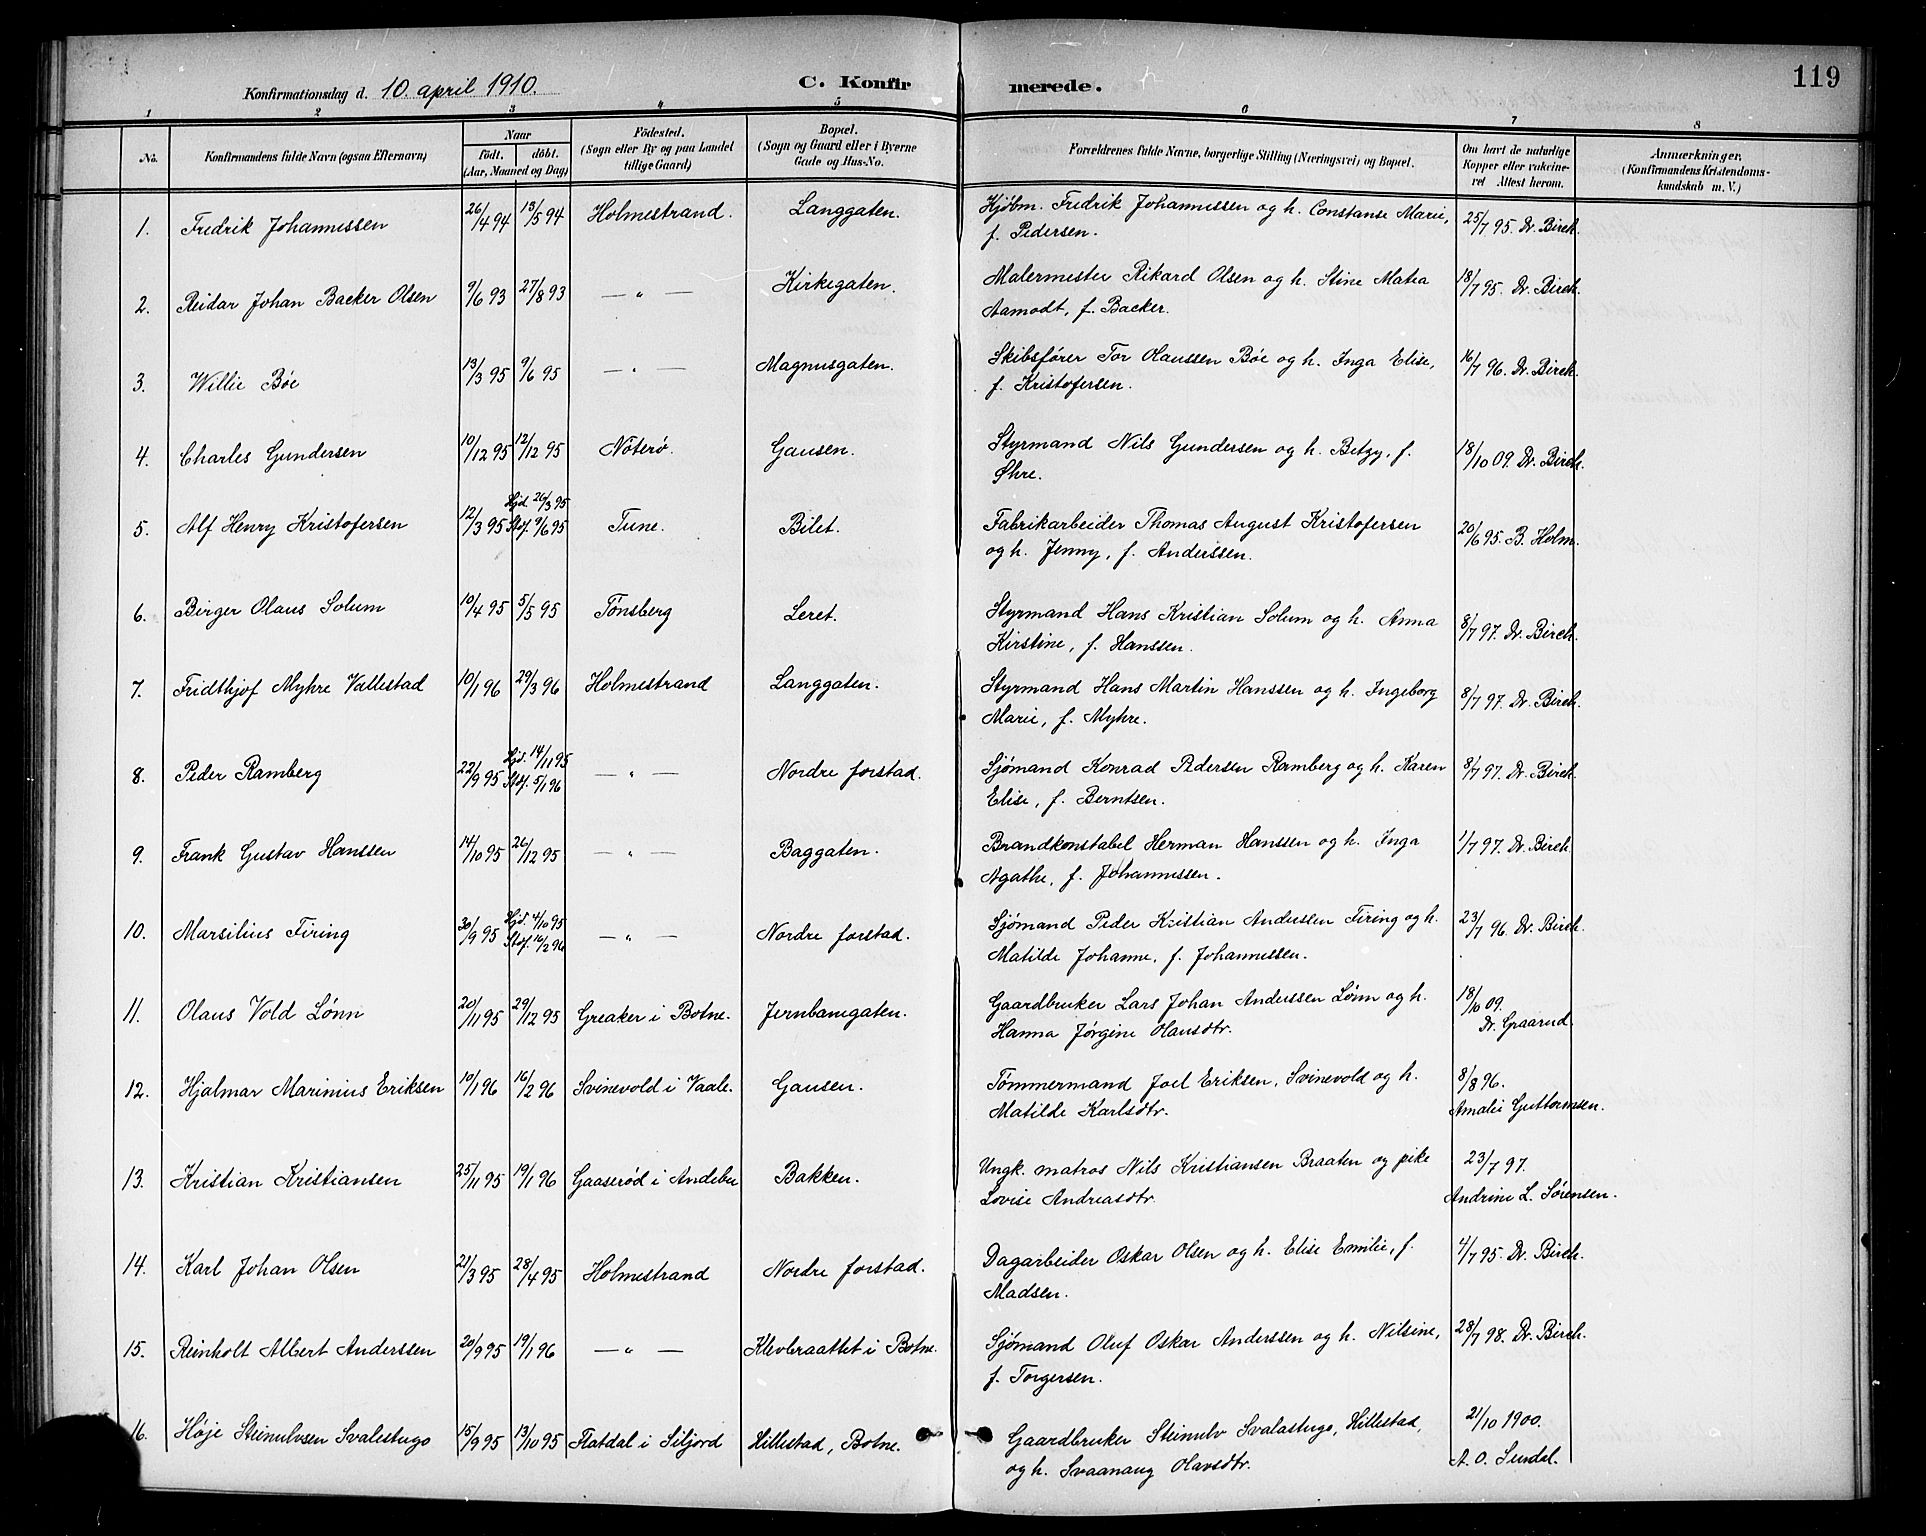 119
Konfirmationsdag d. 10. april 1910.
C. Konfirmerede.
1 2 3 4 5 6 7 8
No.
Konfirmandens fulde Navn (ogsaa Efternavn)
Naar
födt. döbt.
(Aar, Maaned og Dag)
Födested.
(Sogn eller By og paa Landet
tillige Gaard)
Bopæl.
(Sogn og Gaard eller i Byerne
Gade og Hus-No.
Forældrenes fulde Navne, borgerlige Stilling (Næringsvei) og Bopæl.
Om havt de naturlige
Kopper eller vakcine-
ret Attest herom.
Anmærkninger.
(Konfirmandens Kristendoms-
kundskab m. V.)
1. Fredrik Johannessen 26/4 94 13/5 94 Holmestrand. Langgaten. Kjøbm. Fredrik Johannessen og h. Constanse Marie, 25/7 95. Dr. Birch.
f. Pedersen.
2. Reidar Johan Backer Olsen 9/6 93 27/8 93 — " — Kirkegaten. Malermester Rikard Olsen og h. Stine Matea 18/7 95. Dr. Birch.
Aamodt, f. Backer.
3. Willie Böe 13/3 95 9/6 95 — " — Magnusgaten. Skibsfører Tor Olaussen Böe og h. Inga Elise, 16/7 96. Dr. Birch.
f. Kristofersen.
4. Charles Gundersen 10/12 95 12/12 95 Nöterö. Gausen. Styrmand Nils Gundersen og h. Betzy, f. 18/10 09. Dr. Birch.
5. Alf Henry Kristofersen 12/3 95 Hjd. 26/3 95 Stdf. 9/6 95 Tune. Bilet. Fabrikarbeider Thomas August Kristofersen 20/6 95. B. Holm.
og h. Jenny, f. Anderssen.
6. Birger Olaus Solum 10/4 95 5/5 95 Tønsberg Leret. Styrmand Hans Kristian Solum og h. Anna 8/7 97. Dr. Birch.
Kirstine, f. Hanssen.
7. Fridthjof Myhre Vallestad 10/1 96 29/3 96 Holmestrand Langgaten. Styrmand Hans Martin Hanssen og h. Ingeborg 8/7 97. Dr. Birch.
Marie, f. Myhre.
8. Peder Ramberg 22/9 95 Hjd. 14/11 95 Stdf. 5/1 96 — " — Nordre forstad. Sjömand Konrad Pedersen Ramberg og h. Karen 8/7 97. Dr. Birch.
Elise, f. Berntsen.
9. Frank Gustav Hanssen 14/10 95 26/12 95 — " — Baggaten. Brandkonstabel Herman Hanssen og h. Inga 1/7 97. Dr. Birch.
Agathe, f. Johannessen.
10. Marsilius Firing 30/9 95 Hjd. 4/10 95 Stdf. 16/2 96 — " — Nordre forstad. Sjömand Peder Kristian Anderssen Firing og h. 23/7 96. Dr. Birch.
Matilde Johanne, f. Johannessen.
11. Olaus Vold Lönn 20/11 95 29/12 95 Greaker i Botne. Jernbanegaten. Gaardbruker Lars Johan Anderssen Lönn og h. 18/10 09.
Hanna Jørgine Olausdtr. Dr. Graarud.
12. Hjalmar Marinius Eriksen 10/1 96 16/2 96 Svinevold i Vaale. Gausen. Tømmermand Joel Eriksen, Svinevold og h. 8/8 96.
Matilde Karlsdtr. Amalie Guttormsen.
13. Kristian Kristiansen 25/11 95 19/1 96 Gaaserød i Andebu Bakken. Ungk. matros Nils Kristiansen Braaten og pike 23/7 97.
Lovise Andreasdtr. Andrine L. Sørensen.
14. Karl Johan Olsen 21/3 95 28/4 95 Holmestrand Nordre forstad. Dagarbeider Oskar Olsen og h. Elise Emilie, f. 4/7 95. Dr. Birch.
Madsen.
15. Reinholt Albert Anderssen 20/9 95 19/1 96 — " — Klevbraattet i Botne. Sjömand Oluf Oskar Anderssen og h. Nilsine, 28/7 98. Dr. Birch.
f. Torgersen.
16. Høje Steinulvsen Svalestugo 15/9 95 13/10 95 Flatdal i Siljord Hillestad, Botne. Gaardbruker Steinulv Svalastugo, Hillestad, 21/10 1900.
og h. Svaanaug Olavsdtr. A. O. Sundal.